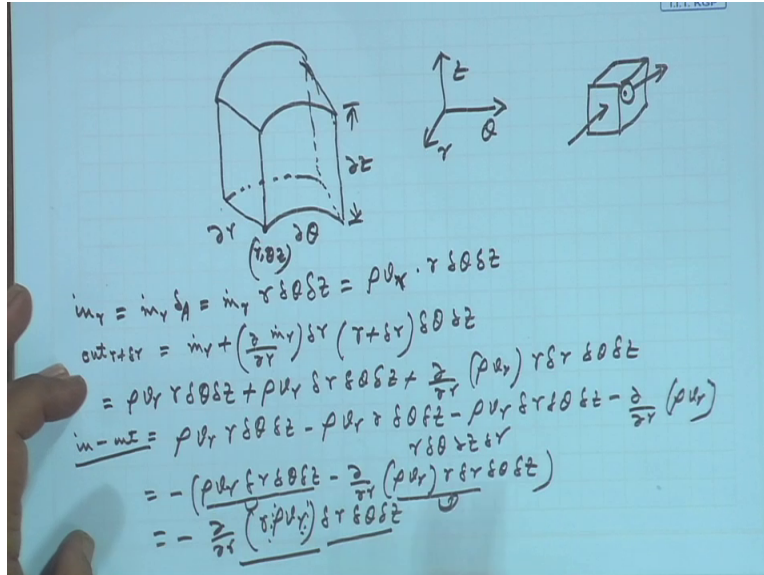 I.I.T. KGP
z
θ
r
∂z
∂r ∂θ
(r,θz)
in_r = ṁ_r δA = ṁ_r r δθδz = ρv_r · r δθδz
out_{r+δr} = ṁ_r + (∂/∂r ṁ_r) δr (r+δr) δθ δz
= ρv_r r δθδz + ρv_r δr δθδz + ∂/∂r (ρv_r) r δr δθ δz
in - out = ρv_r r δθ δz - ρv_r r δθδz - ρv_r δr δθ δz - ∂/∂r (ρv_r)
r δθ δz δr
= - (ρv_r δr δθδz - ∂/∂r (ρv_r) r δr δθ δz)
= - ∂/∂r (r ρv_r) δr δθ δz